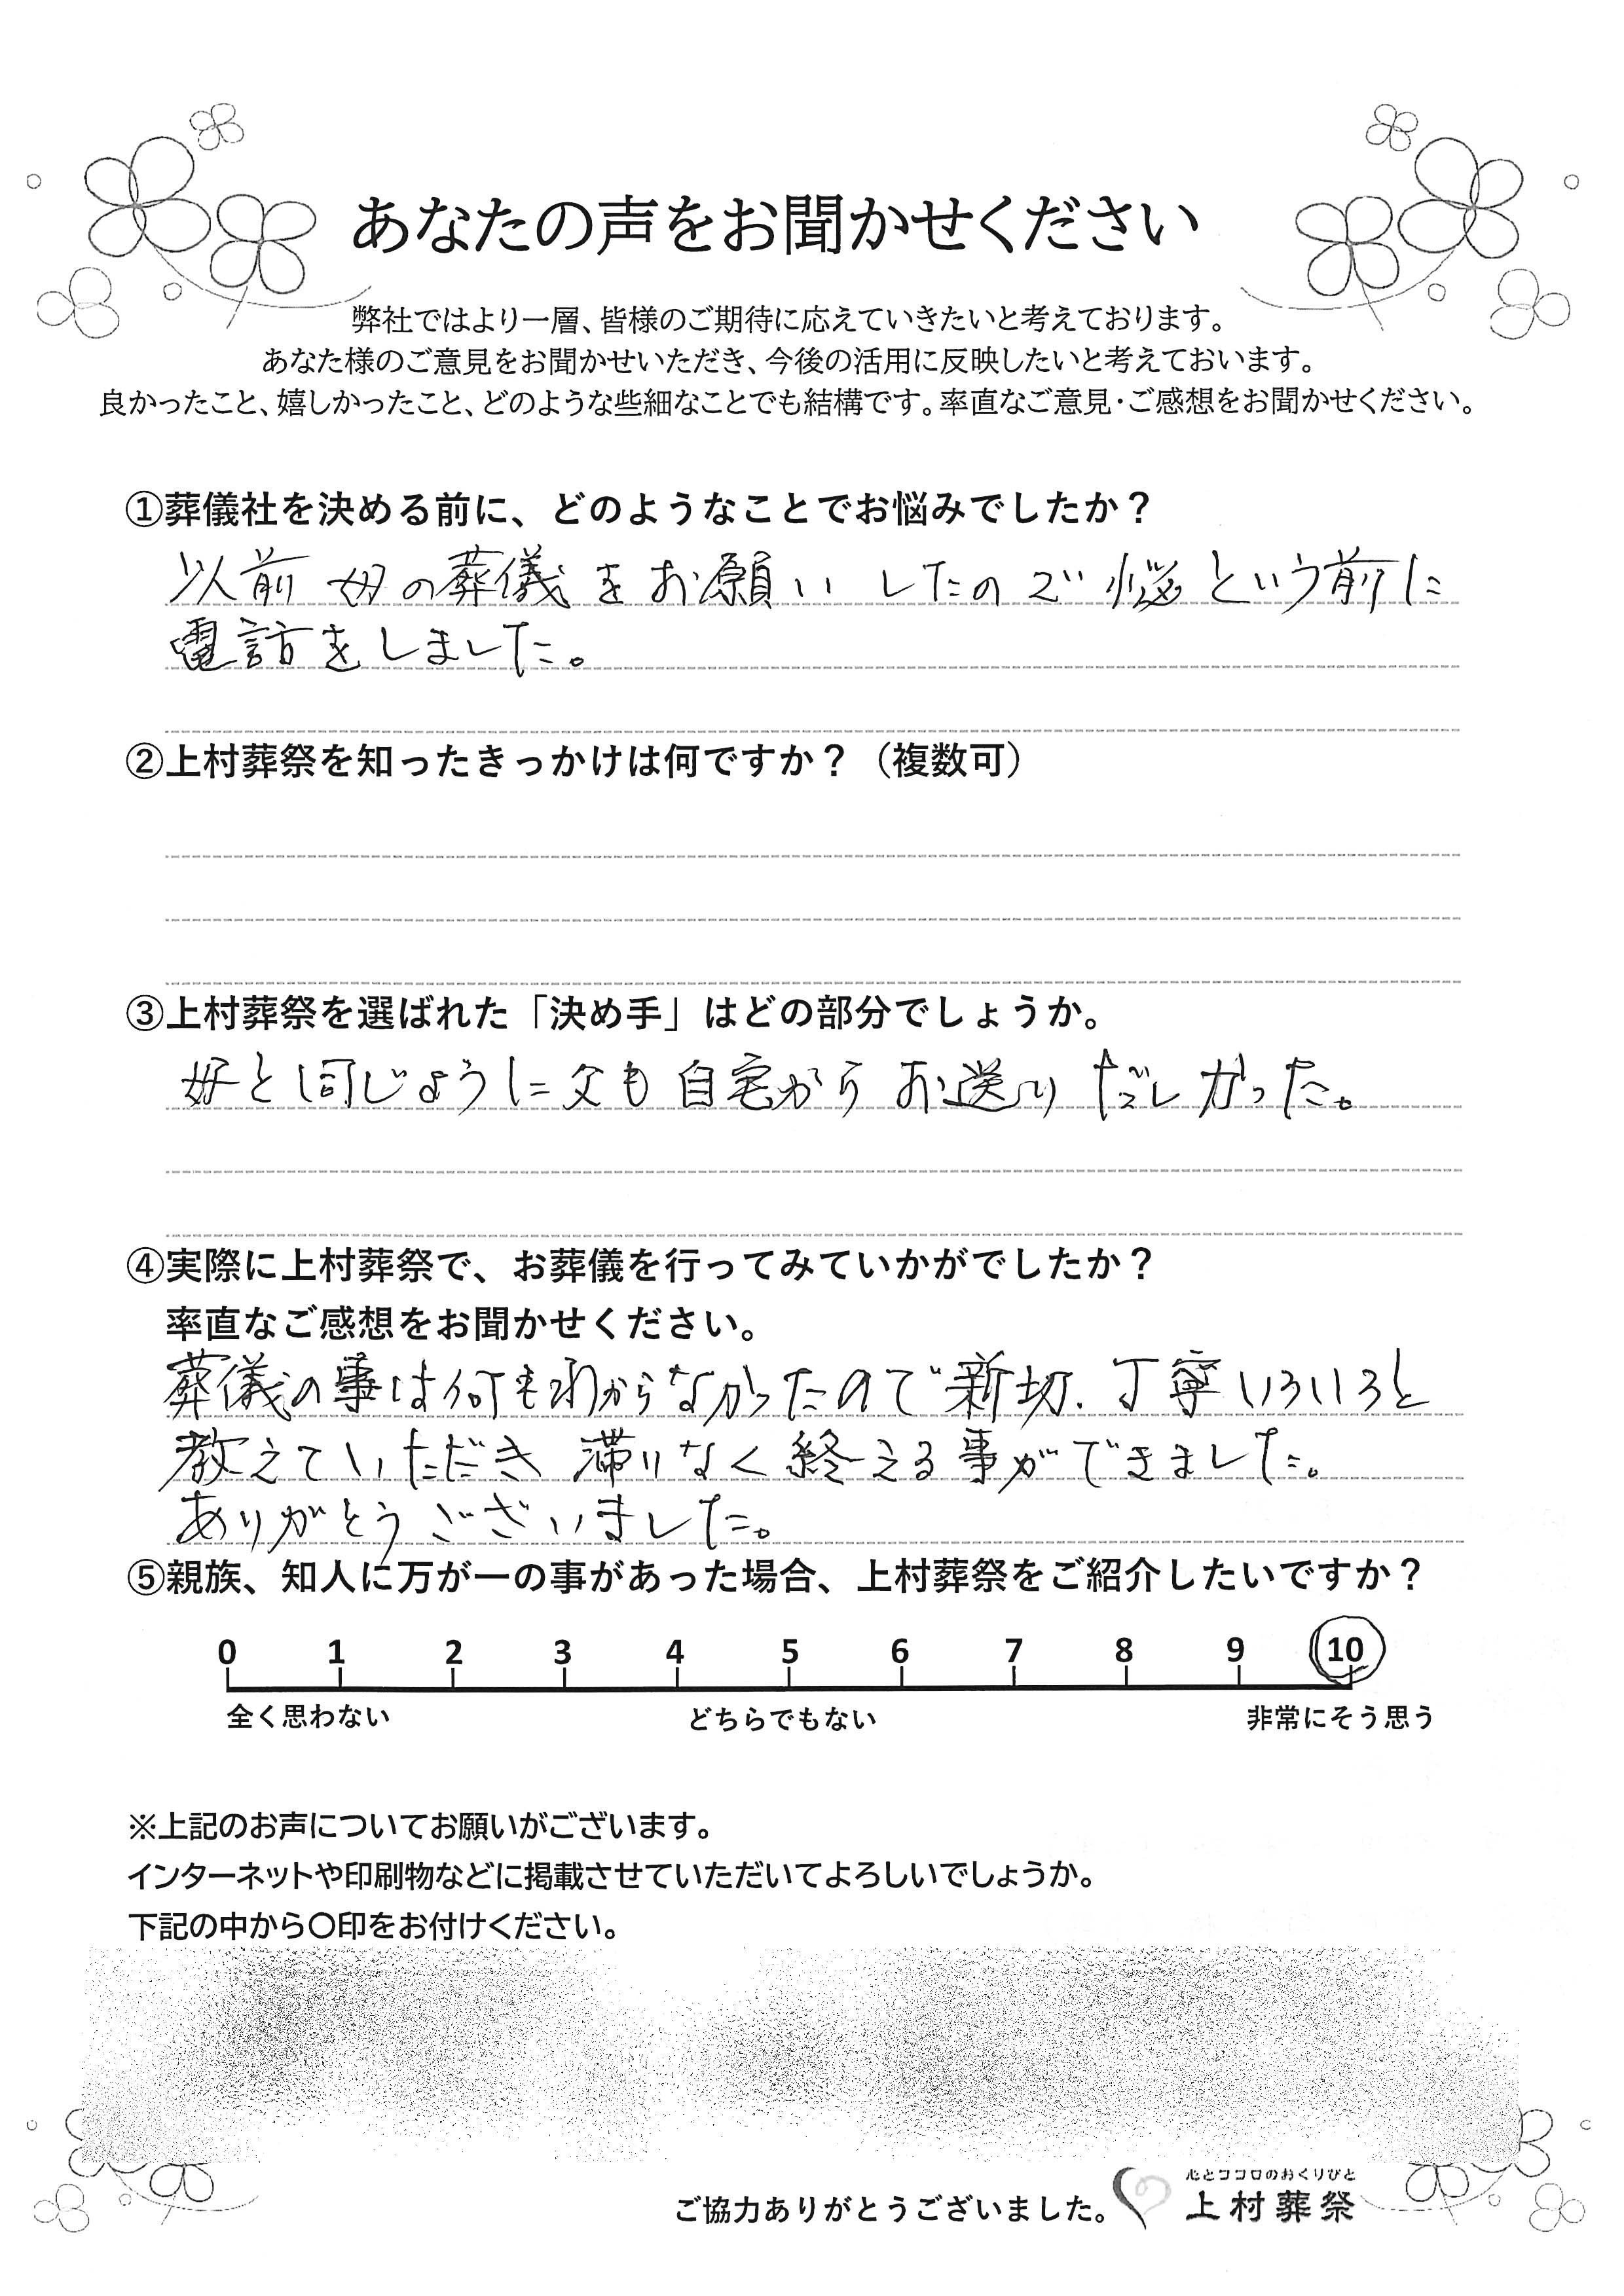 あなたの声をお聞かせください
弊社ではより一層、皆様のご期待に応えていきたいと考えております。
あなた様のご意見をお聞かせいただき、今後の活用に反映したいと考えておいます。
良かったこと、嬉しかったこと、どのような些細なことでも結構です。率直なご意見・ご感想をお聞かせください。
①葬儀社を決める前に、どのようなことでお悩みでしたか？
以前 母の葬儀をお願いしたので 悩という前に
電話をしました。
②上村葬祭を知ったきっかけは何ですか？（複数可）
③上村葬祭を選ばれた「決め手」はどの部分でしょうか。
と同じように父も自宅からお送り だしかった。
④実際に上村葬祭で、お葬儀を行ってみていかがでしたか？
率直なご感想をお聞かせください。
葬儀の事は何もわからなかったので新切.丁寧いろいろと
教えていただき 滞りなく終える事ができました。
ありがとうございました。
⑤親族、知人に万が一の事があった場合、上村葬祭をご紹介したいですか？
0 1 2 3 4 5 6 7 8 9 10
全く思わない どちらでもない 非常にそう思う
※上記のお声についてお願いがございます。
インターネットや印刷物などに掲載させていただいてよろしいでしょうか。
下記の中から〇印をお付けください。
心とココロのおくりびと
ご協力ありがとうございました。 上村葬祭